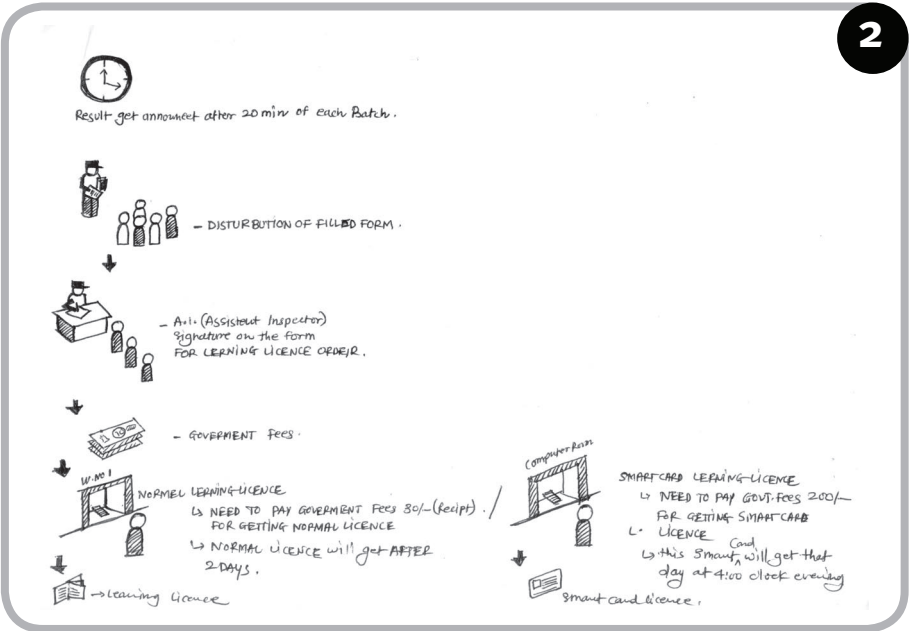 2
Result get announcet after 20 min of each Batch.
- DISTURBUTION OF FILLED FORM.
- A.I. (Assistent Inspector)
signature on the form
FOR LERNING LICENCE ORDER.
- GOVERMENT Fees.
W.NO 1
NORMEL LERNING LICENCE
↳ NEED TO PAY GOVERMENT Fees 30/- (Recipt). /
FOR GETTING NORMAL LICENCE
↳ NORMAL LICENCE will get AFTER
2 DAYS.
→ Learning licence
Computer Room
SMARTCARD LERNING LICENCE
↳ NEED TO PAY GOVT. Fees 200/-
FOR GETTING SMARTCARD
↳ LICENCE
↳ this Smart Card will get that
day at 4:00 clock evening
Smart card licence.